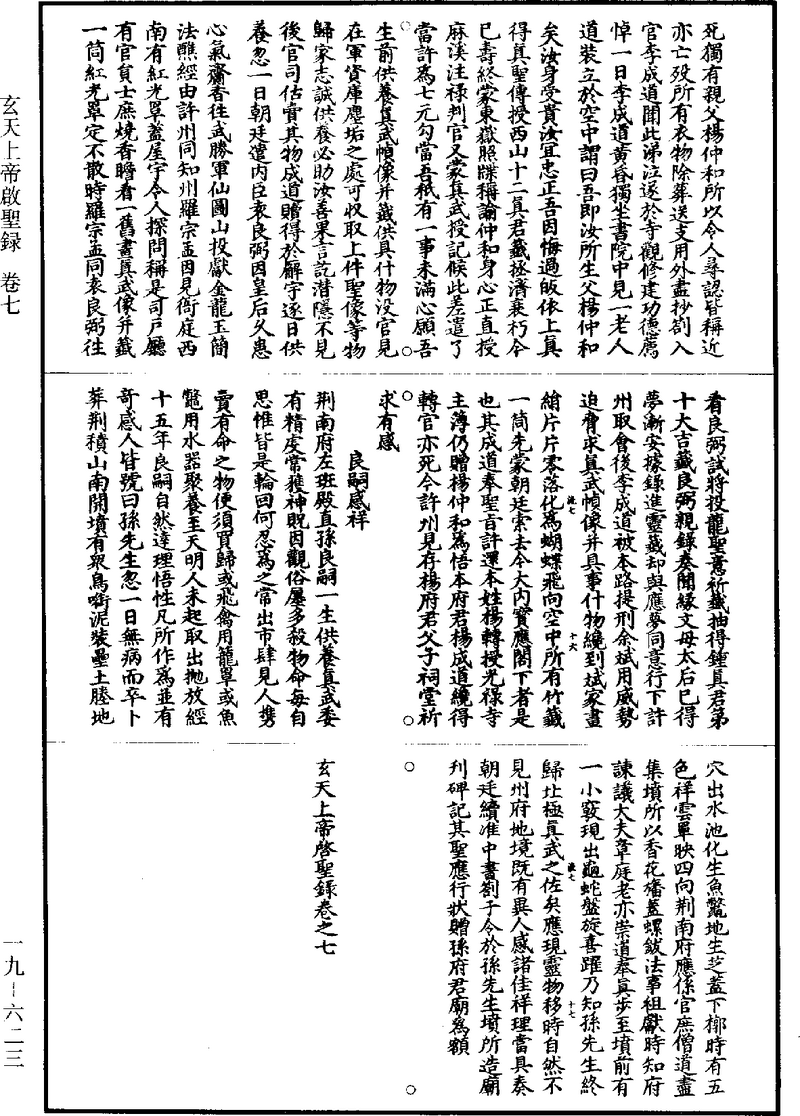 玄天上帝啟聖錄 卷七
一九-六二三
死獨有親父楊仲和所以令人尋認皆稱近
亦亡歿所有衣物除葬送支用外盡抄劄入
官李成道聞此涕泣遂於寺觀修建功德薦
悼一日李成道黄昏獨坐書院中見一老人
道裝立於空中謂曰吾即汝所生父楊仲和
矣汝身受貴汝宜忠正吾因悔過皈依上真
得真聖傳授西山十二真君籤拯濟衰朽今
已壽終蒙東嶽照牒稱諭仲和身心正直授
麻溪注禄判官又蒙真武授記候此差遣了
當許為七元勾當吾秖有一事未滿心願吾
生前供養真武幀像并籤供具什物没官見
在軍資庫塵垢之處可收取上件聖像等物
歸家志誠供養必助汝善果言訖潜隱不見
後官司估賣其物成道贈得於廨宇逐日供
養忽一日朝廷遣内臣袁良弼因皇后久患
心氣齋香往武勝軍仙圖山投獻金龍玉簡
法醮經由許州同知州羅宗孟因見衙庭西
南有紅光罩蓋屋宇令人探問稱是司户廳
有官員士庶燒香瞻看一舊畫真武像并籤
一筒紅光罩定不散時羅宗孟同袁良弼往
看良弼試將投龍聖意祈籤抽得鍾真君第
十大吉籤良弼親録奏聞緣文母太后已得
夢漸安據錄進靈籤却與應夢同意行下許
州取會後李成道被本路提刑余斌用威勢
迫脅求真武幀像并具事什物纔到斌家畫
綃片片零落化為蝴蝶飛向空中所有竹籤
一筒先蒙朝廷索去今大内寶應閣下者是
也其成道奉聖旨許還本姓楊轉授光禄寺
主簿仍贈楊仲和為悟本府君楊成道纔得
轉官亦死今許州見存楊府君父子祠堂祈
求有感
良嗣感祥
荆南府左班殿直孫良嗣一生供養真武委
有精虔常獲神貺因觀俗屢多殺物命每自
思惟皆是輪回何忍為之常出市肆見人携
賣有命之物便須買歸或飛禽用籠罩或魚
鼈用水器聚養至天明人未起取出抛放經
十五年良嗣自然達理悟性凡所作為並有
奇感人皆號曰孫先生忽一日無病而卒卜
葬荆積山南開墳有衆鳥㘅泥裝壘土塍地
穴出水池化生魚鼈地生芝蓋下槨時有五
色祥雲單映四向荆南府應係官庶僧道盡
集墳所以香花旛蓋螺鈸法事祖獻時知府
諫議大夫章庭老亦崇道奉真步至墳前有
一小竅現出龜蛇盤旋喜躍乃知孫先生終
歸北極真武之佐矣應現靈物移時自然不
見州府地境既有異人感諸佳祥理當具奏
朝廷續准中書劄子令於孫先生墳所造廟
刋碑記其聖應行狀贈孫府君廟為額
玄天上帝啓聖錄卷之七